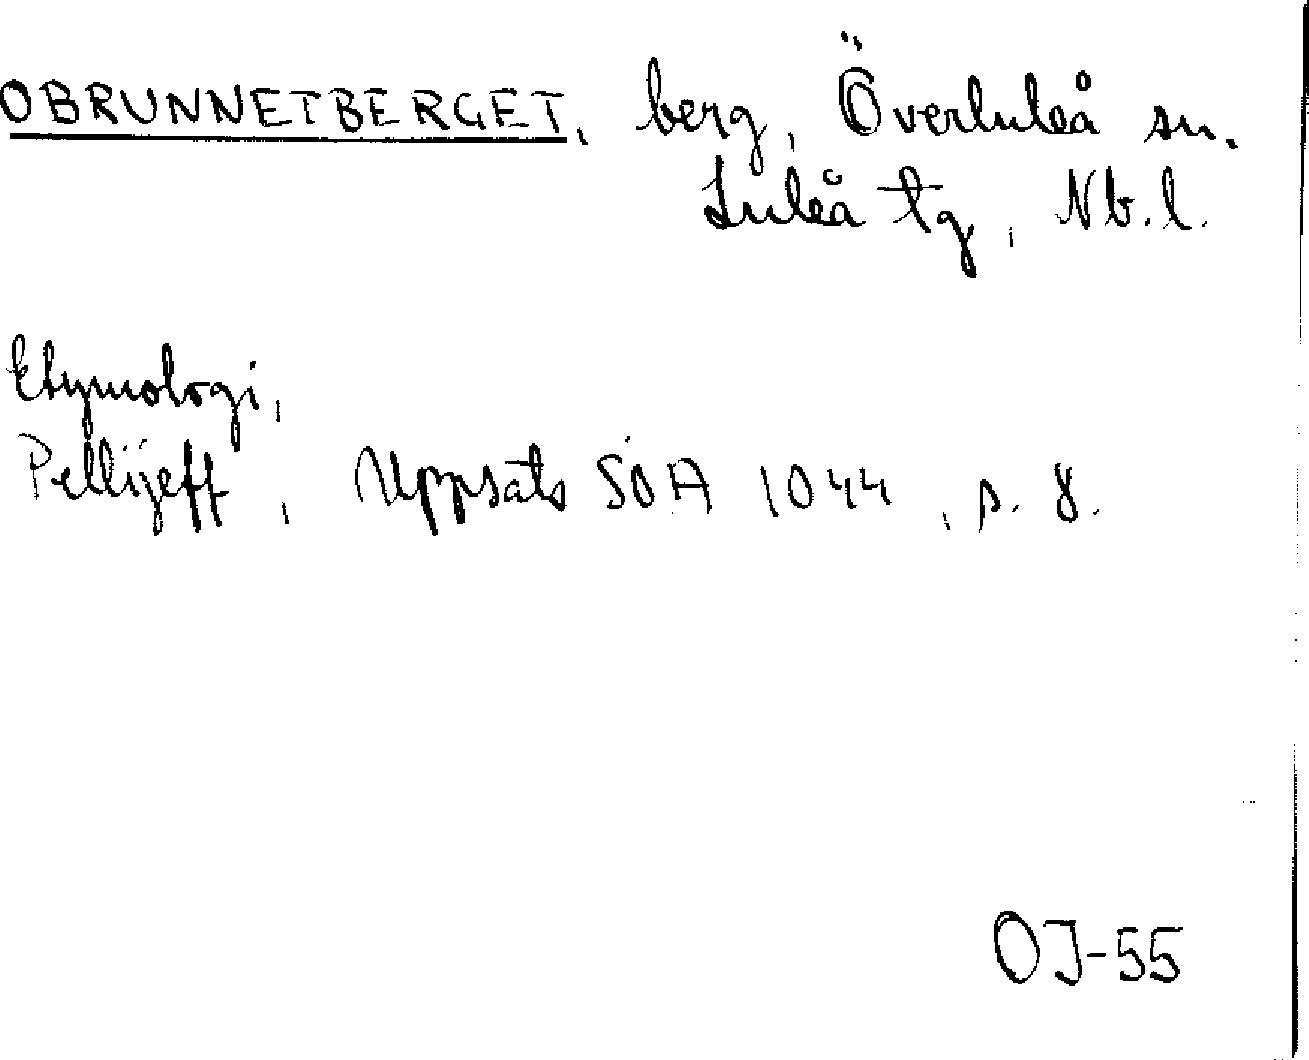 OBRUNNETBERGET, berg, Överluleå sn.
Luleå tg, Nb.l.
Etymologi,
Pellijeff, Uppsats SOA 1044, s. 8.
OJ-55